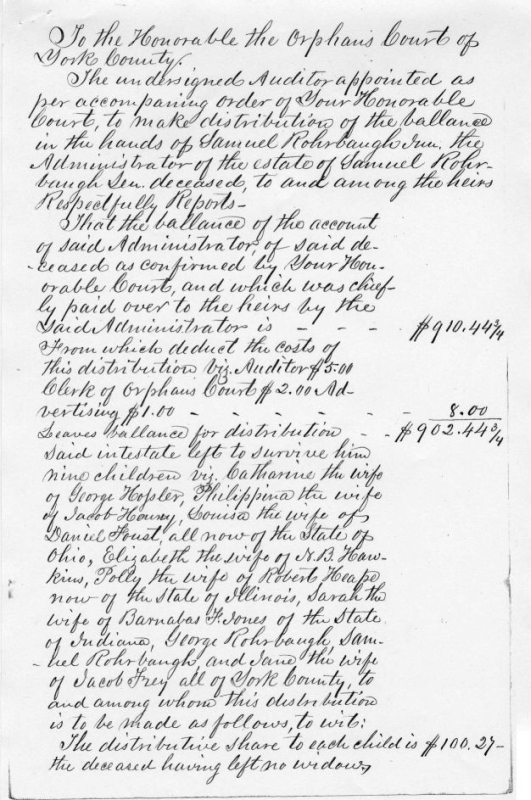 To the Honorable the Orphans Court of
York County.
The undersigned Auditor appointed as
per accompaning order of Your Honorable
Court, to make distribution of the ballance
in the hands of Samuel Rohrbaugh Jun. the
Administrator of the estate of Samuel Rohr-
baugh Sen. deceased, to and among the heirs
Respectfully Reports-
That the ballance of the account
of said Administrator, of said de-
ceased as confirmed by Your Hon-
orable Court, and which was chief-
ly paid over to the heirs by the
Said Administrator is - - - $910.44 3/4
From which deduct the costs of
this distribution viz. Auditor $5.00
Clerk of Orphans Court $2.00 Ad-
vertising $1.00 - - - - - - 8.00
Leaves ballance for distribution - - $902.44 3/4
Said intestate left to survive him
nine children viz. Catharine the wife
of George Hopler, Philippina the wife
of Jacob Houry, Louisa the wife of
Daniel Foust, all now of the State of
Ohio, Elizabeth the wife of N.B. Haw-
kins, Polly the wife of Robert Heape
now of the State of Illinois, Sarah the
wife of Barnabas F. Jones of the State
of Indiana, George Rohrbaugh, Sam-
uel Rohrbaugh, and Jane the wife
of Jacob Frey all of York County, to
and among whom this distribution
is to be made as follows, to wit:
The distributive share to each child is $100.27-
the deceased having left no widow,